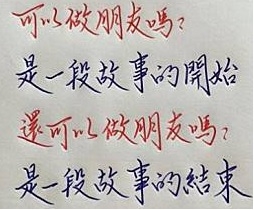 可以做朋友嗎?
是一段故事的開始
還可以做朋友嗎?
是一段故事的結束